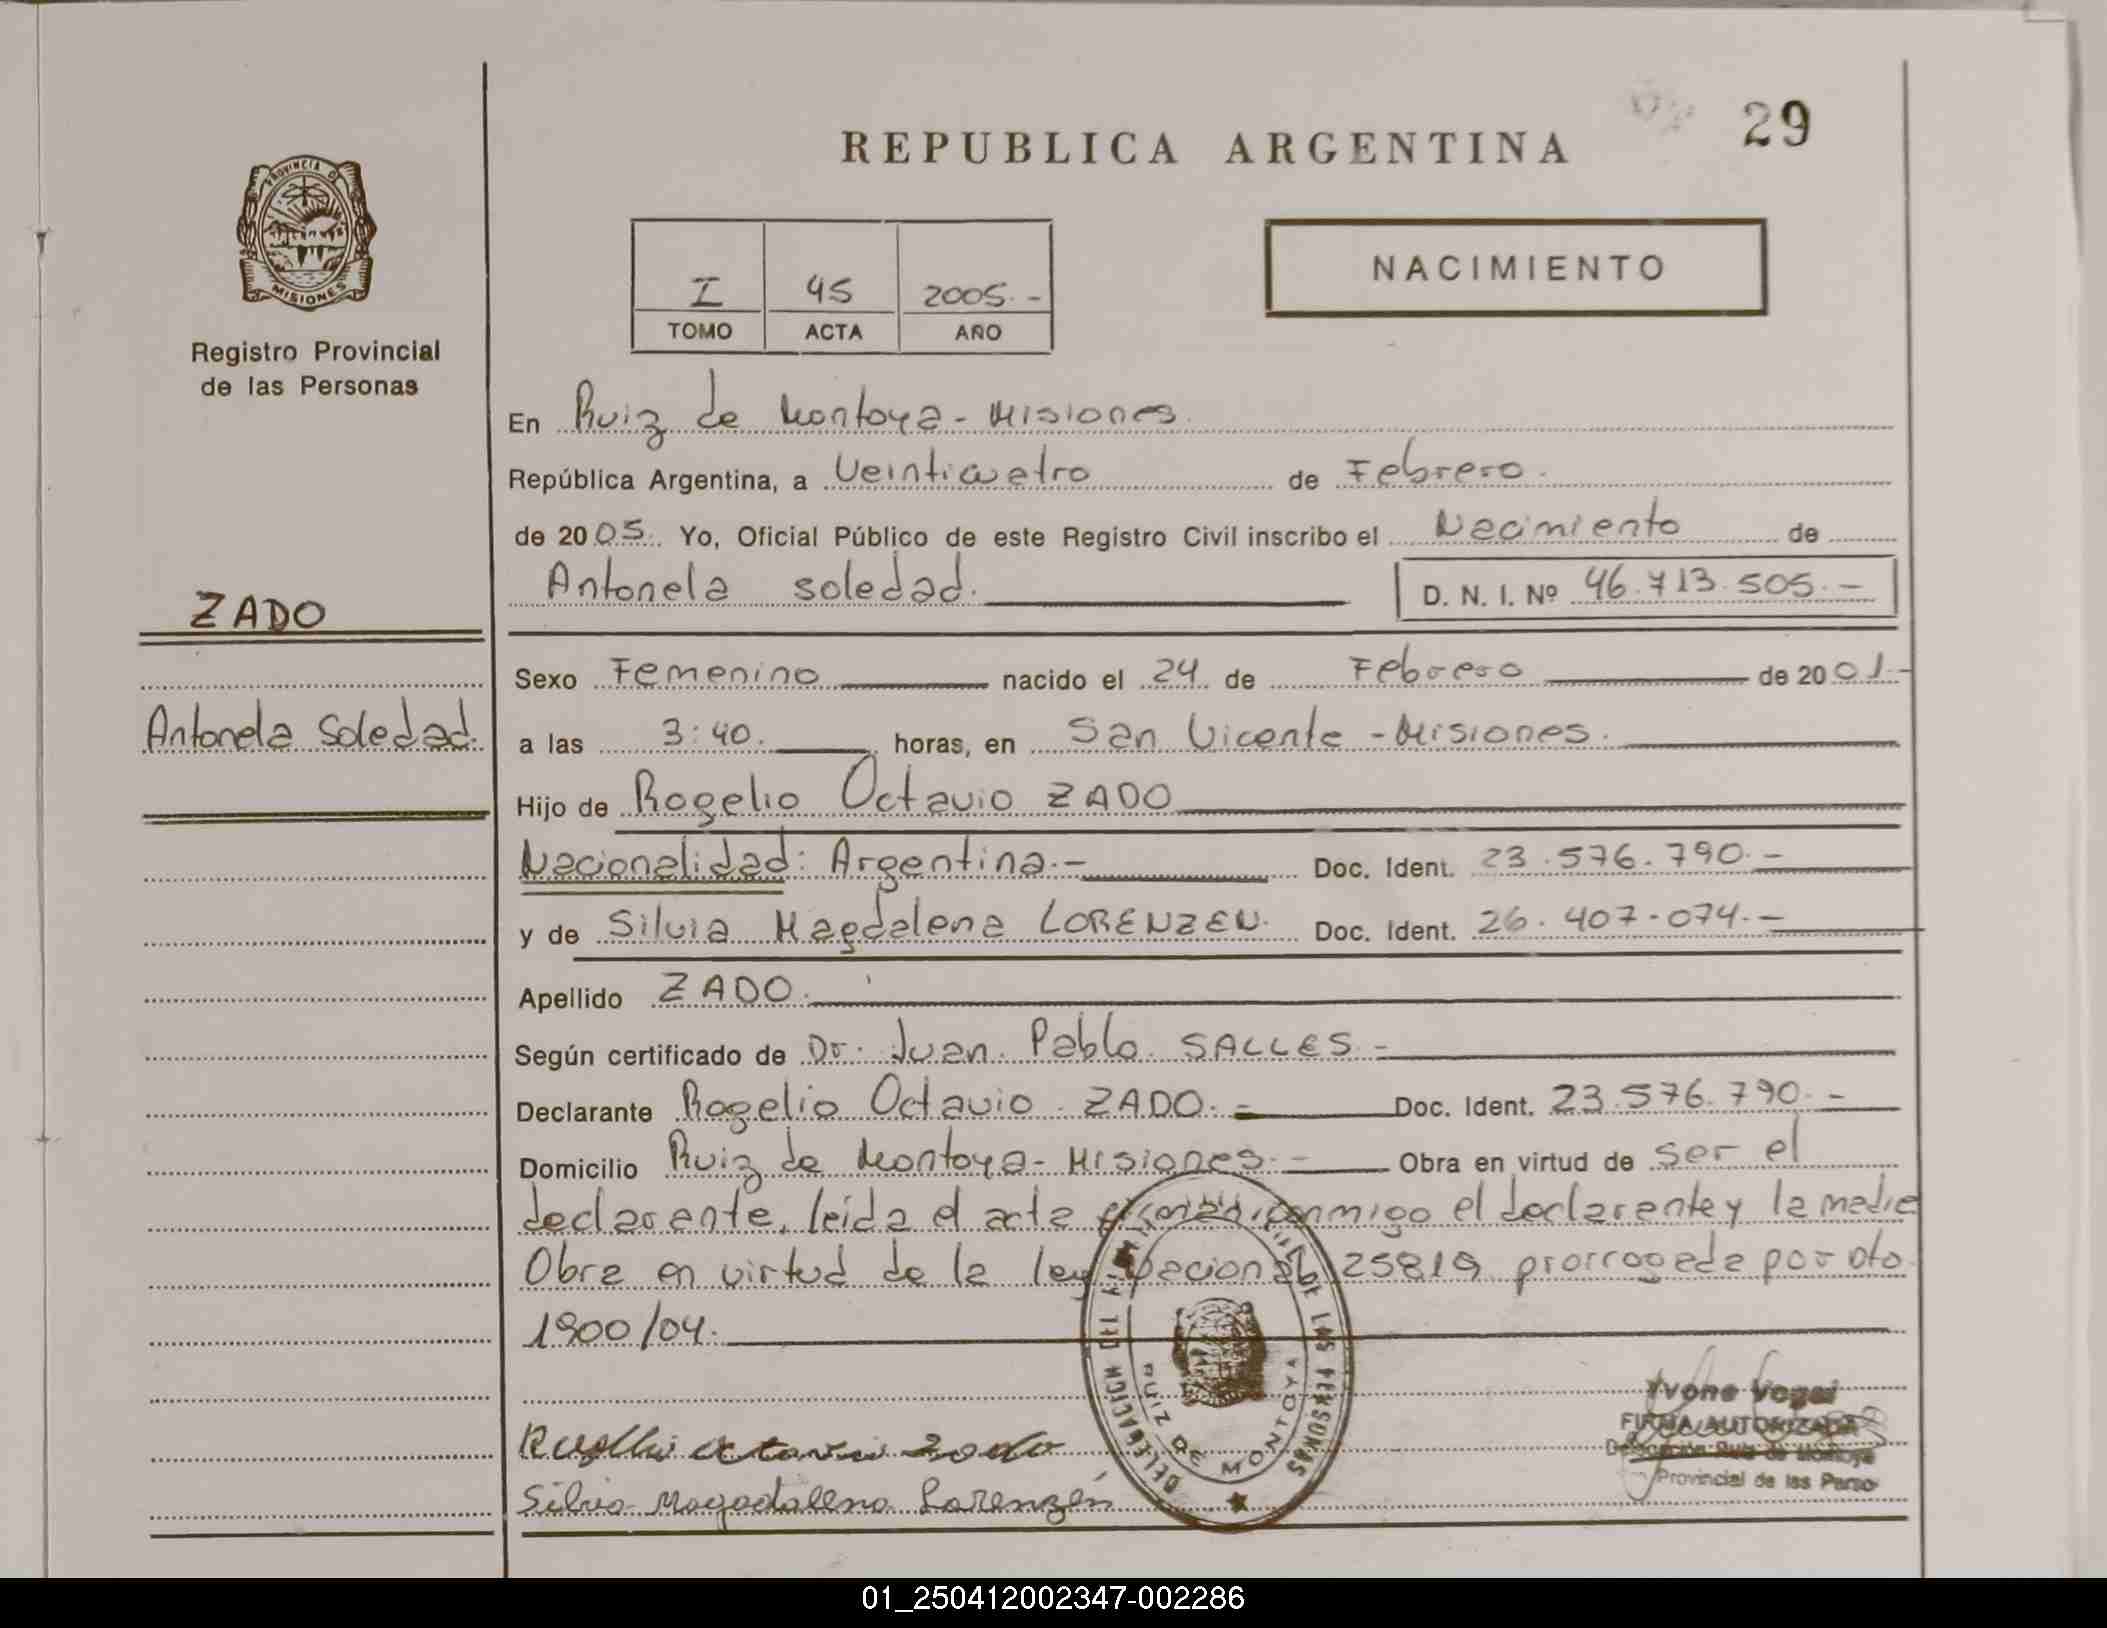 29
REPUBLICA ARGENTINA
PROVINCIA DE
MISIONES
Registro Provincial
de las Personas
I 45 2005.-
TOMO ACTA AÑO
NACIMIENTO
En Ruiz de Montoya - Misiones.
República Argentina, a Veinticuatro de Febrero.
de 2005. Yo, Oficial Público de este Registro Civil inscribo el Nacimiento de
Antonela Soledad. D. N. I. Nº 46.713.505.-
ZADO
Sexo Femenino nacido el 24 de Febrero de 2001.-
Antonela Soledad.
a las 3:40. horas, en San Vicente - Misiones.
Hijo de Rogelio Octavio ZADO
Nacionalidad: Argentina.- Doc. Ident. 23.576.790.-
y de Silvia Magdalena LORENZEN. Doc. Ident. 26.407.074.-
Apellido ZADO.
Según certificado de Dr. Juan Pablo SALLES.-
Declarante Rogelio Octavio ZADO.- Doc. Ident. 23.576.790.-
Domicilio Ruiz de Montoya - Misiones.- Obra en virtud de ser el
declarante, leida el acta conmigo el declarante y la madre
Obra en virtud de la ley Nacional 25819 prorrogada por dto
1900/04.
DELEGACION DEL DE LAS PERSONAS
RUIZ DE MONTOYA
Octavio Zado
Silvia Magadalena Lorenzén
Yvone Vogel
FIRMA AUTORIZADA
Delegación Ruiz de Montoya
Provincial de las Perso
01_250412002347-002286